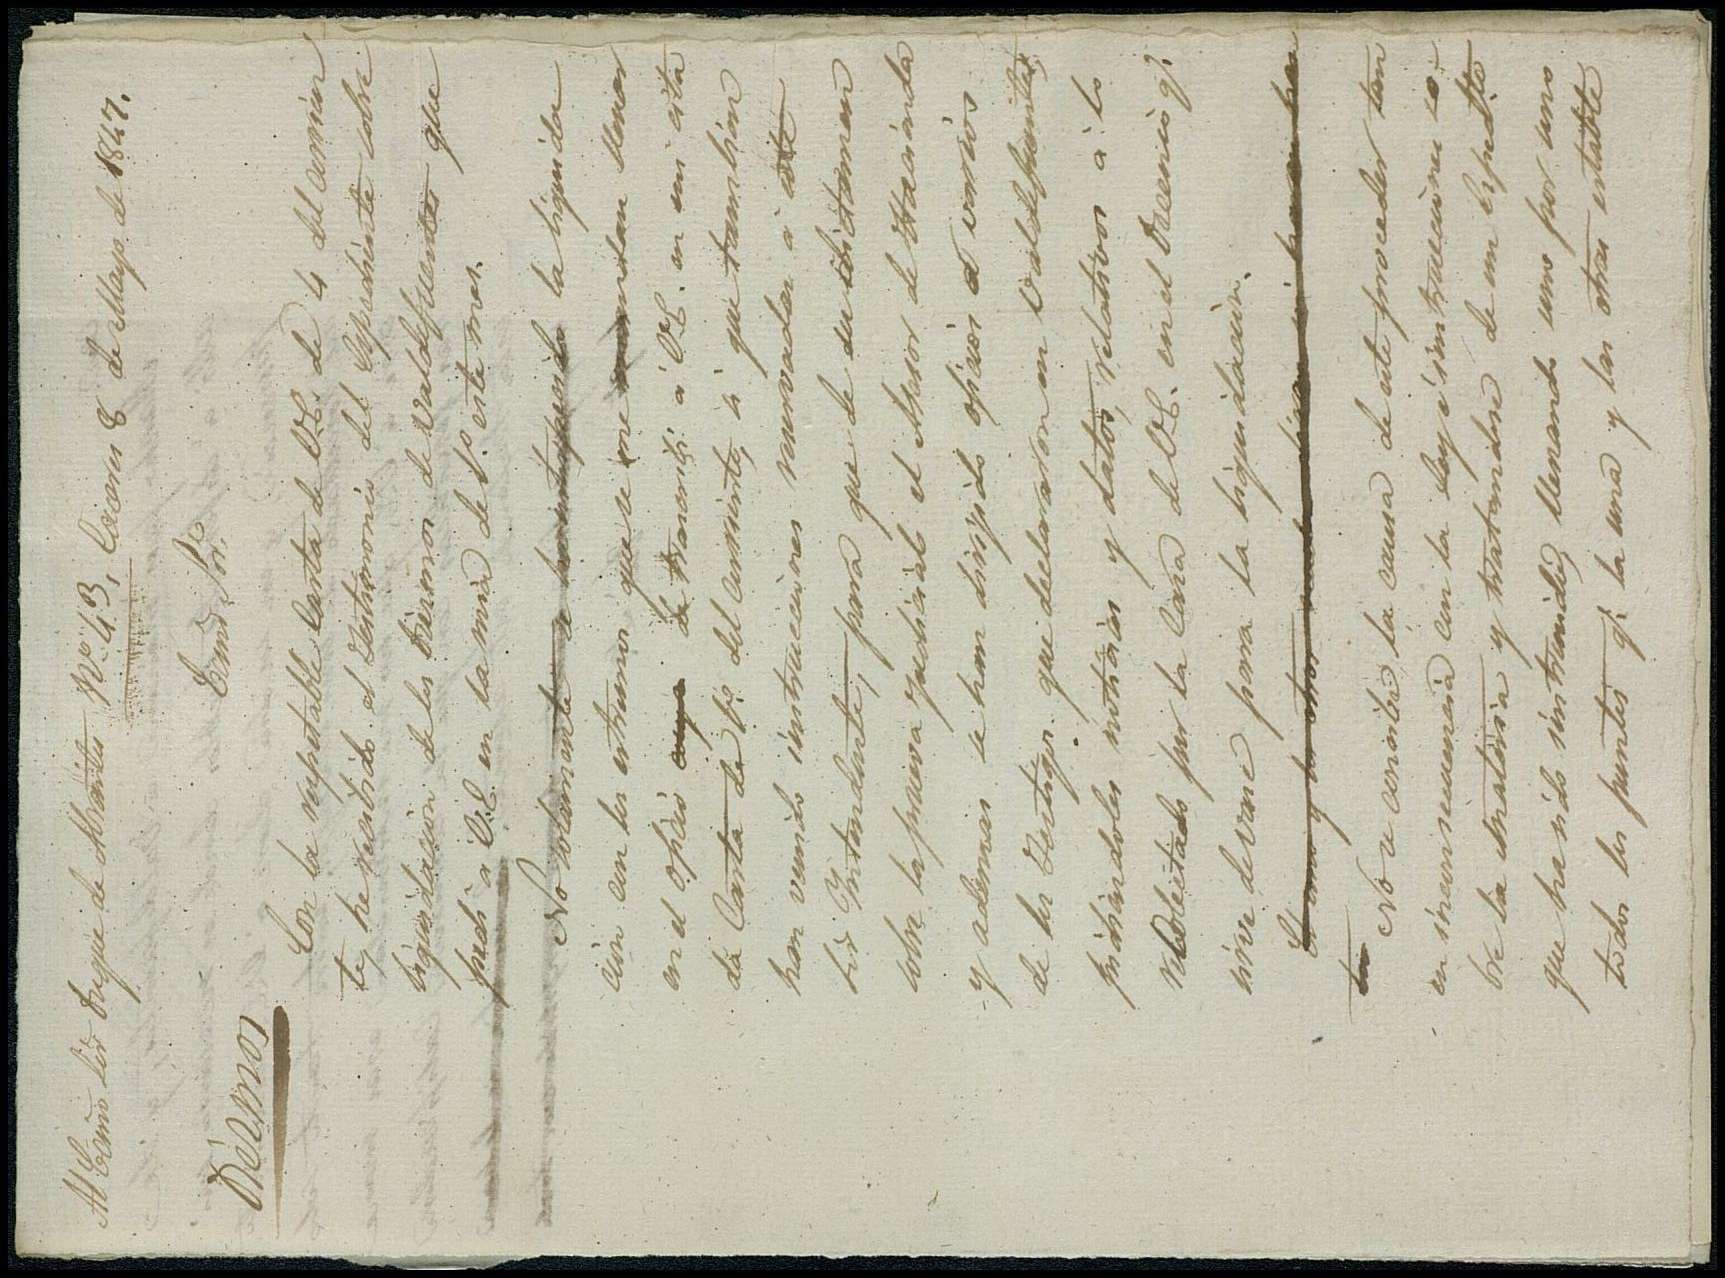 Al Excmo Sor Duque de Abrantes Nº 43, Caceres 8 de Mayo de 1847.
Excmo Sor.
Diezmos
Con la respetable Carta de V.E. de 4 del corrien
te, he recibido el Testimonio del Expediente sobre
liquidacion de los Diezmos de Valdefuentes que
pedi a V.E. en la mia de 1º este mes.
No solamente la liquida
cion con los estremos que se me
en el oficio de trasmiti á V.E. en mi cita
da Carta de 1º del corriente, si que tambien
han venido instrucciones reservadas a este
Sor Yntendente, para que de su dictamen
sobre la prueva judicial el Asesor de Hacienda
y ademas se han dirigido oficios a varios
de los Testigos que declararon en Valdefuentes
pidiendoles noticias y datos, relativos á lo
recolectado por la Casa de V.E. en el Decenio q.
sirve de vase para la liquidacion.
No se concibe la causa de este proceder tan
en inconsecuencia con la ley é instrucciones so-
bre la materia y tratandose de un Espedte
que ha sido instruido, llenando uno por uno
todos los puntos q. la una y las otras estable